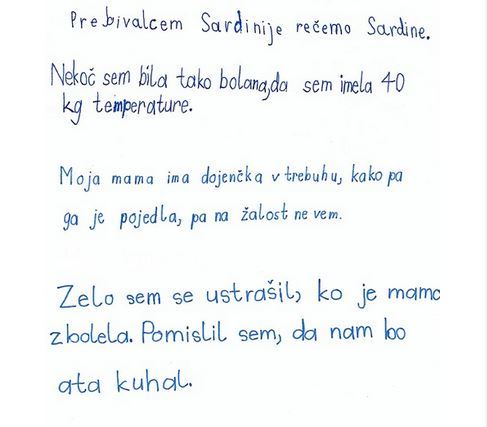 Prebivalcem Sardinije rečemo Sardine.
Nekoč sem bila tako bolana,da sem imela 40
kg temperature.
Moja mama ima dojenčka v trebuhu, kako pa
ga je pojedla, pa na žalost ne vem.
Zelo sem se ustrašil, ko je mama
zbolela. Pomislil sem, da nam bo
ata kuhal.